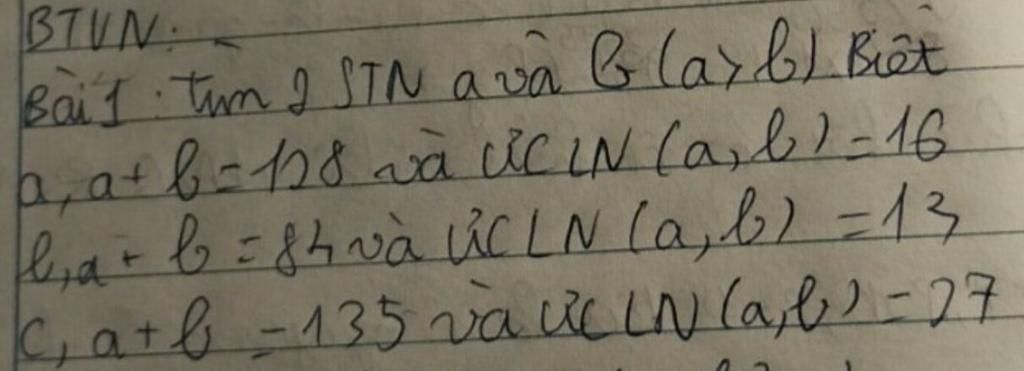 BTVN:
Bài 1: Tìm 2 STN a và b (a > b) Biết
a, a + b = 128 và ƯCLN (a, b) = 16
b, a + b = 84 và ƯCLN (a, b) = 13
c, a + b = 135 và ƯCLN (a, b) = 27